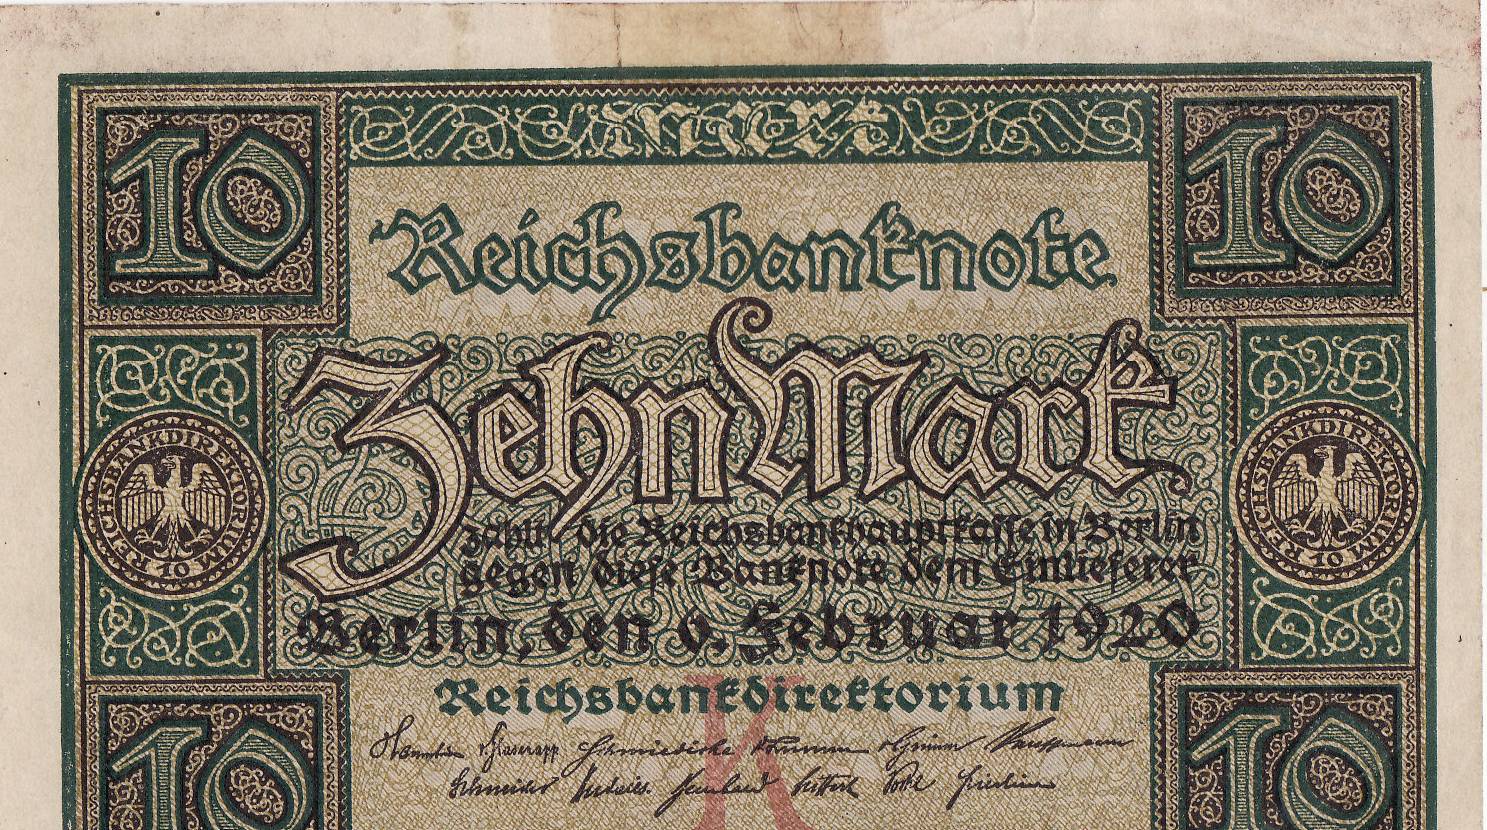 10 Mark 10
Reichsbanknote
Zehn Mark
REICHSBANKDIREKTORIUM 10
REICHSBANKDIREKTORIUM 10
zahlt die Reichsbankhauptkasse in Berlin
gegen diese Banknote dem Einlieferer
Berlin, den 6. Februar 1920
Reichsbankdirektorium
10 10
v. Glasenapp v. Grimm Kauffmann
Schneider
K